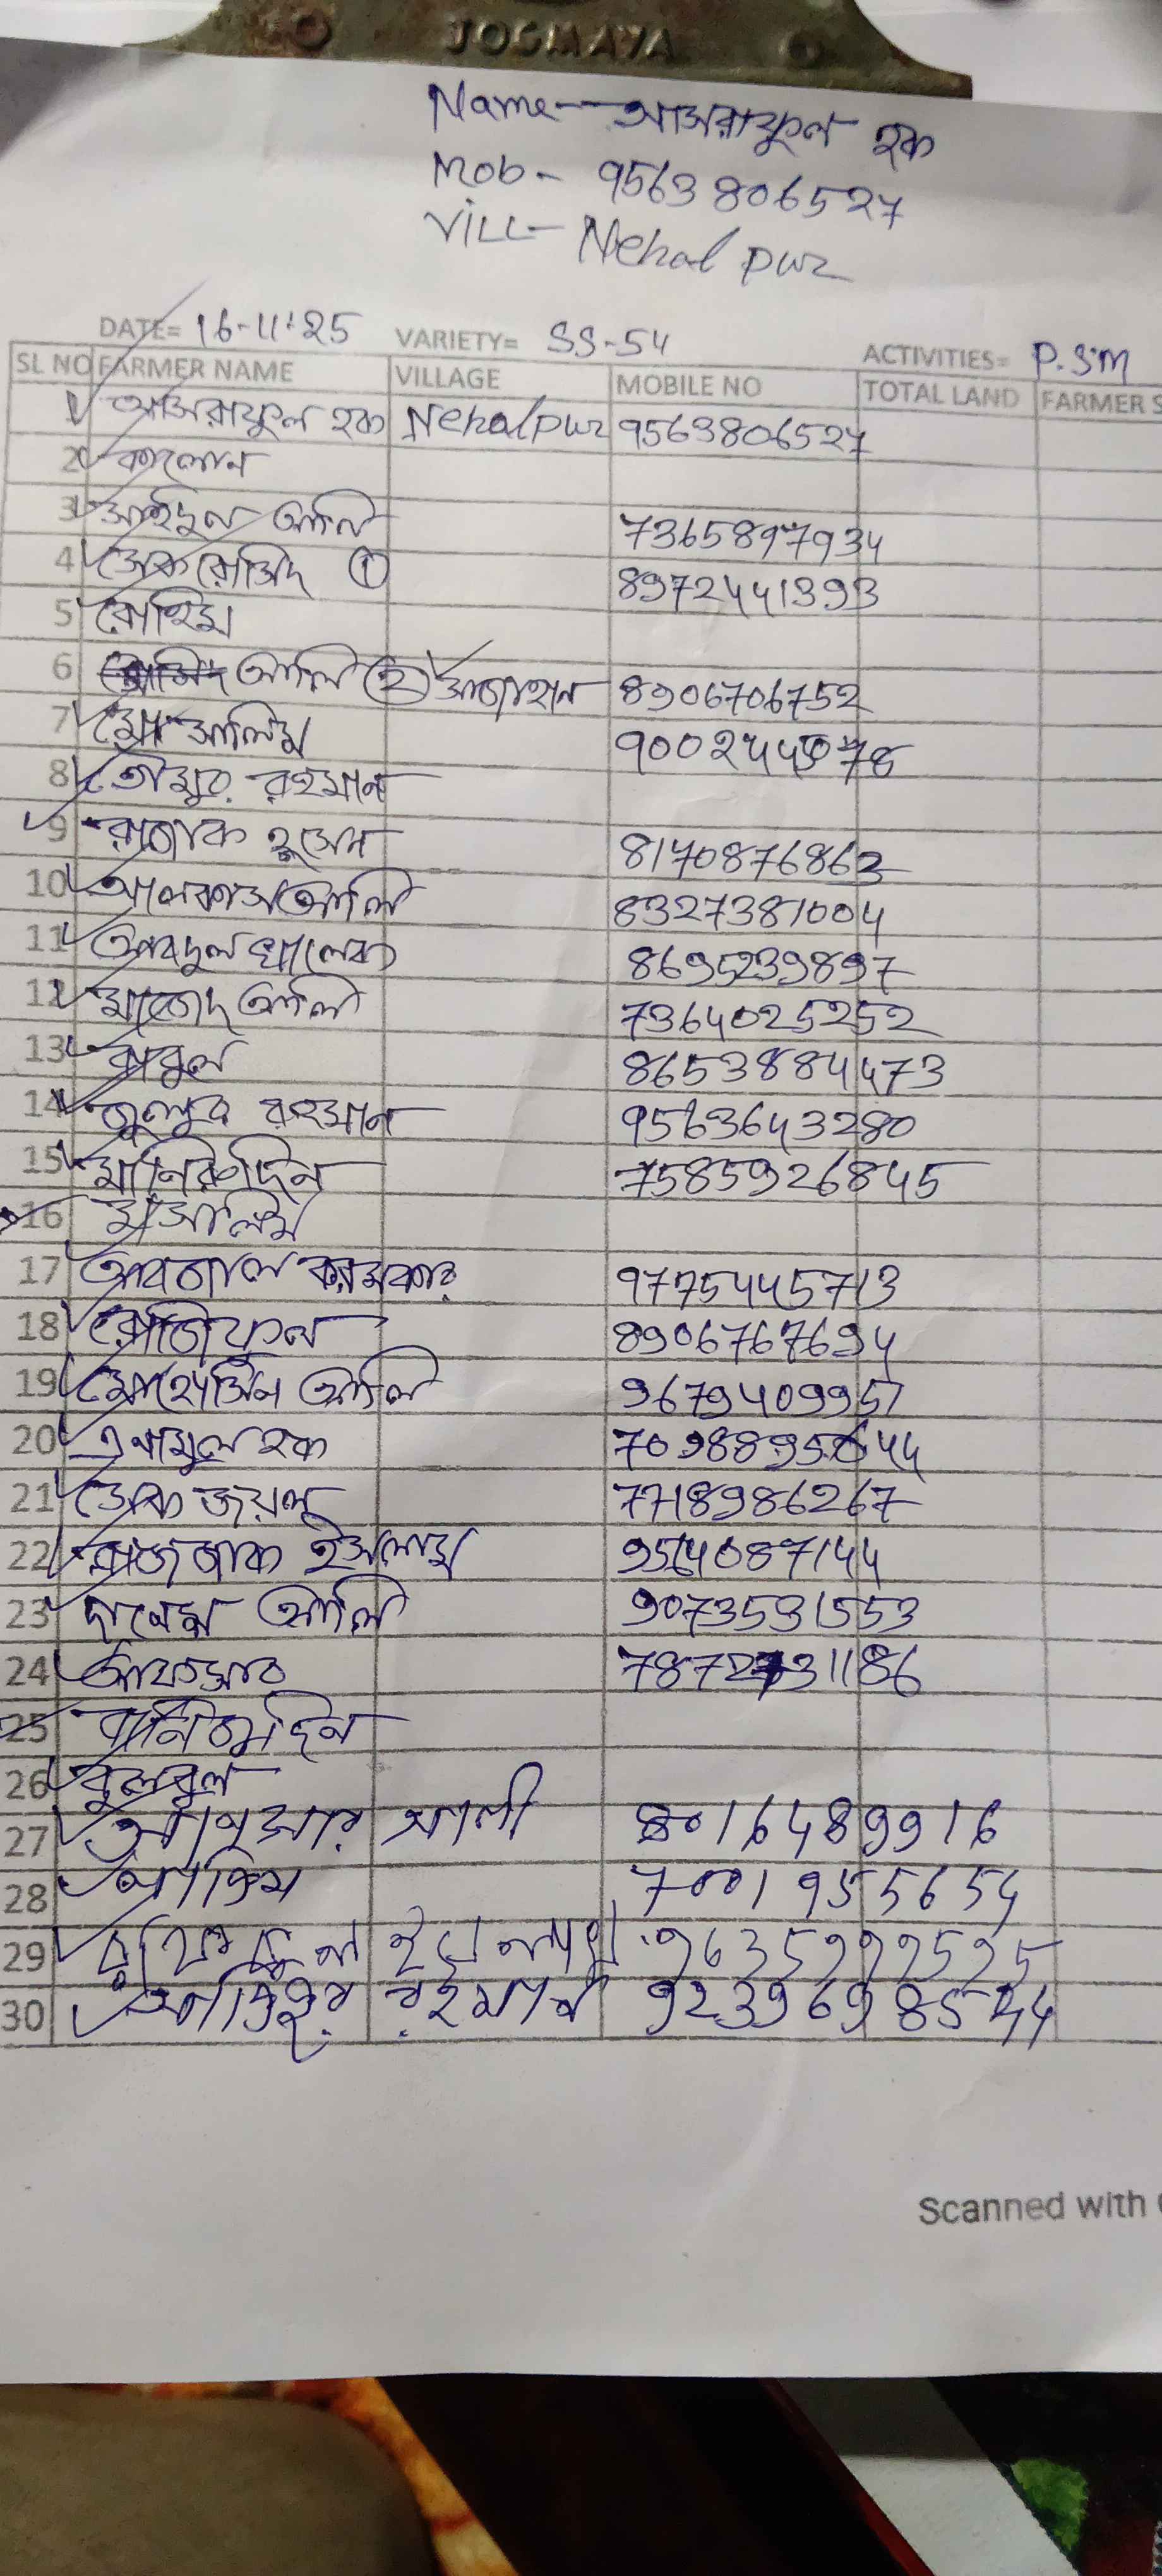 JOGMAYA
Name - আসরাফুল হক
Mob - 9563806527
Vill - Nehalpur
DATE= 16-11-25 VARIETY= SS-54 ACTIVITIES= P.S.M
SL NO FARMER NAME VILLAGE MOBILE NO TOTAL LAND FARMER S
1 আসরাফুল হক Nehalpur 9563806527
2 কালোন
3 সাইদুল আলি 7365897934
4 সেক রোসিদ ① 8972441393
5 রোহিম
6 আলি ② সাজাহান 8906706752
7 মোঃ সালিম
8 রহমান
9 রাজাক হুসেন 8170876863
10 আলেকাস আলি 8327381004
11 আবদুল খালেক 8695239897
12 মাজেদ আলি 7364025252
13 বাবুল 8653884473
14 জুলুর রহমান 9563643280
15 মানিরুদিন 7585926845
16 মুসালিম
17 আবজাল করমকার 9775445713
18 রোজিফুল 8906767694
19 মোহোসিন আলি 9679409951
20 এনামুল হক
21 সেক জয়ল 7718986267
22 রাজজাক ইসলাম 9564087144
23 আলি 9073531553
24
25
26 বুলবুল
27 আনুসার আলী 8016489916
28 7001955654
29 রফিকুল ইসলাম 9635999595
30 রহমান 9239698544
Scanned with